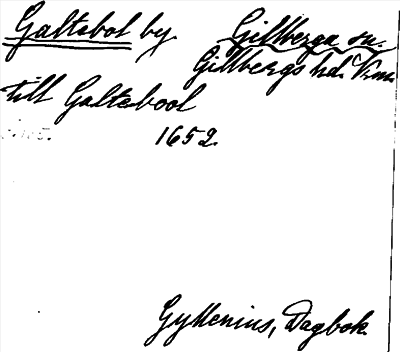 Galtebol by. Gillberga sn.
Gillbergs hd. Vrml.
till Galtebool
1652.
Gyllenius, Dagbok.